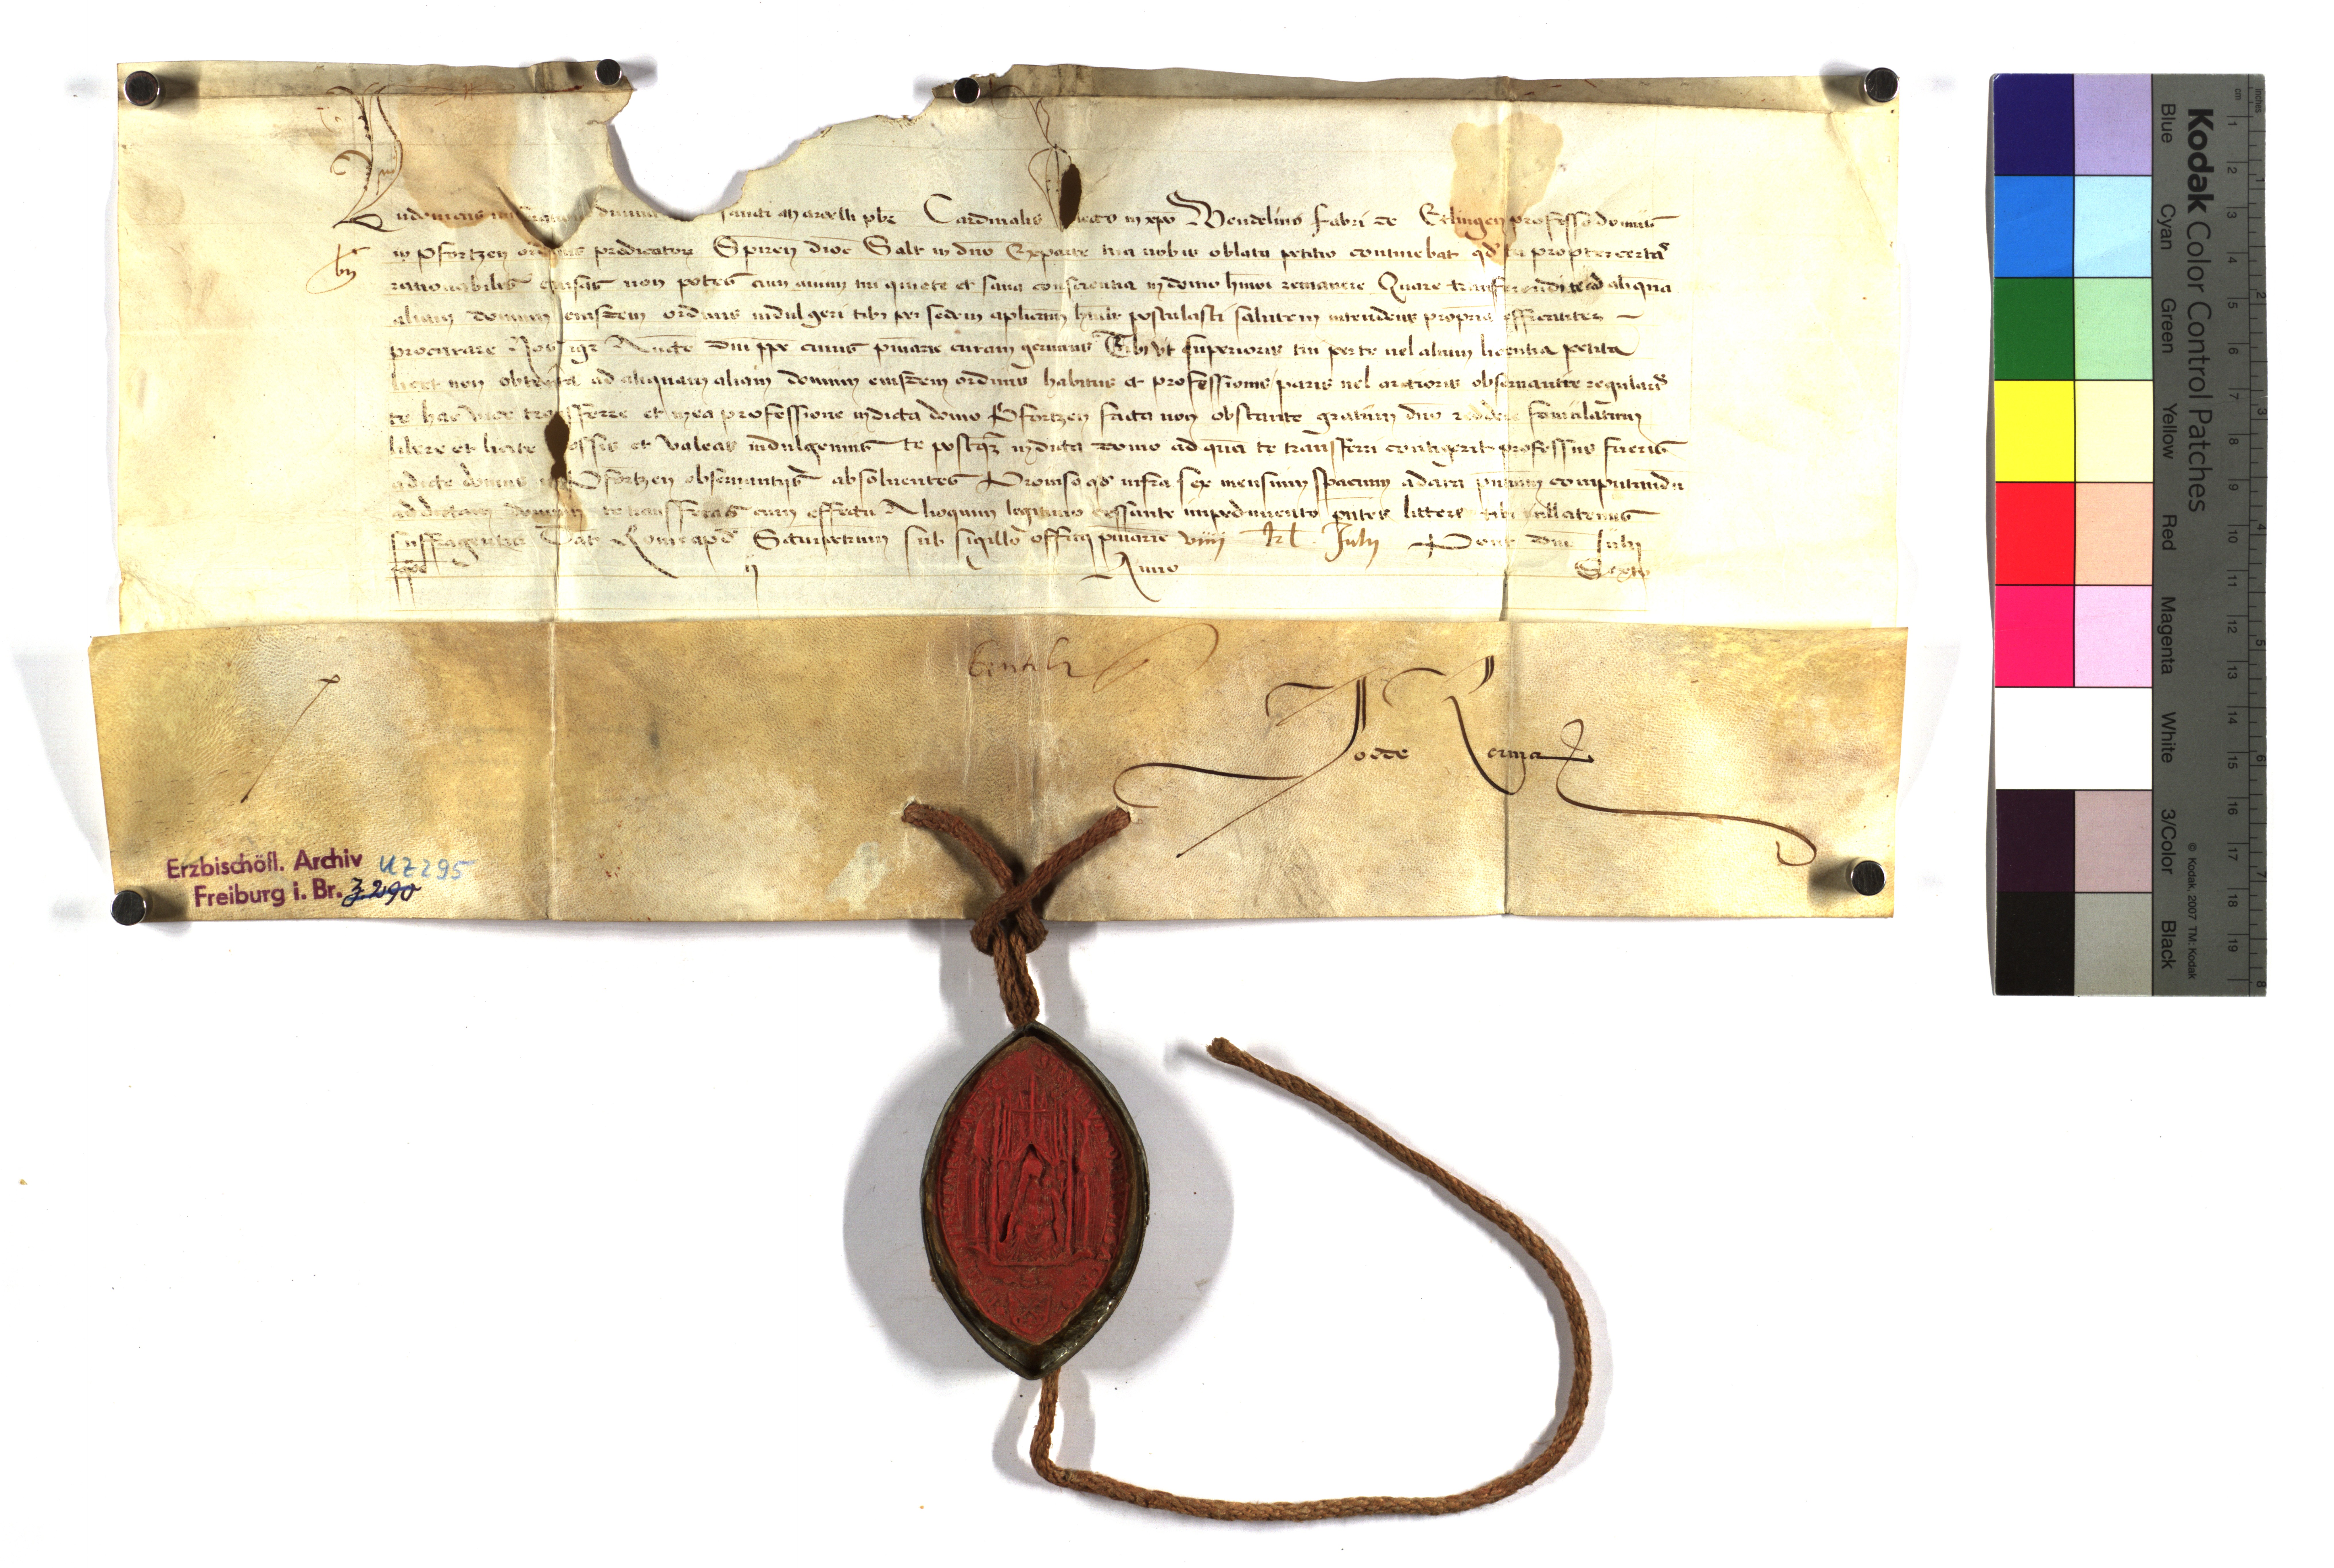 Ludovicus miseratione divina sancti Marcelli pbr Cardinalis dilecto in xpo Wendelino Fabri de Eslingen professo domus
in Pfortzen ordinis predicatorum Spiren dioc Salt in dno Exparte tua nobis oblata petitio continebat qd tu propter certas
rationabiles causas non potes cum animi tui quiete et sana conscientia in domo hmoi remanere Quare transferendi te ad aliqua
aliam domum eiusdem ordinis indulgeri tibi per sedem aplicam hmlr postulasti salutem intendens propria efficaciter
procurare Nos igr Aucte dni ppe cuius pmarie curam gerimus Tibi ut superioris tui per te vel alium licentia petita
licet non obtenta ad aliquam aliam domum eiusdem ordinis habitus et professionis paris vel arctioris observantie regularis
te hac vice transferre et in ea professione in dicta domo Pfortzen facta non obstante gratum dno reddere famulatum
libere et licite possis et valeas indulgemus te postqz in dicta domo ad qua te transferri contigerit professus fueris
a dicte domus in Pfortzen observantijs absolventes Proviso qd infra sex mensium spacium a data pntium computandu
ad dictam domum te transferas cum effectu Alioquin legitimo cessante impedimento pntes littere tibi nullatenus
suffragentur Dat Rome apd S sub sigillo officij pmarie viiij kl Julij Pont dni Julij
ppe ij Anno Sexto
Jo de Reyna
Erzbischöfl. Archiv UZ 295
Freiburg i. Br. Z 290
Kodak Color Control Patches
Blue Cyan Green Yellow Red Magenta White 3/Color Black
© Kodak, 2007 TM: Kodak
cm 1 2 3 4 5 6 7 8 9 10 11 12 13 14 15 16 17 18 19
inches 1 2 3 4 5 6 7 8